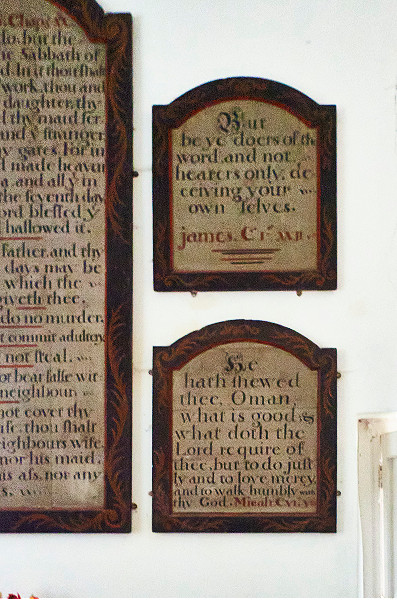 . Chap XX
do, but the
e Sabbath of
d. In it thou ſhalt
work, thou and
daughter, thy
thy maid ſer
and y ſtranger
y gates. For in
d made heaven
a, and all y in
the ſeventh day,
ord bleſſed y
hallowed it.
father, and thy
days may be
which the
giveth thee.
do no murder.
t commit adultery.
not ſteal.
ot bear falſe wit
neighbour
not covet thy
iſe, thou ſhalt
eighbours wife,
nor his maid,
is aſs, nor any
s.
But
be ye doers of the
word, and not
hearers only, de
ceiving your
own ſelves.
james. C.
He
hath ſhewed
thee, O man,
what is good, &
what doth the
Lord require of
thee, but to do juſt
ly and to love mercy,
and to walk humbly with
thy God. Micah